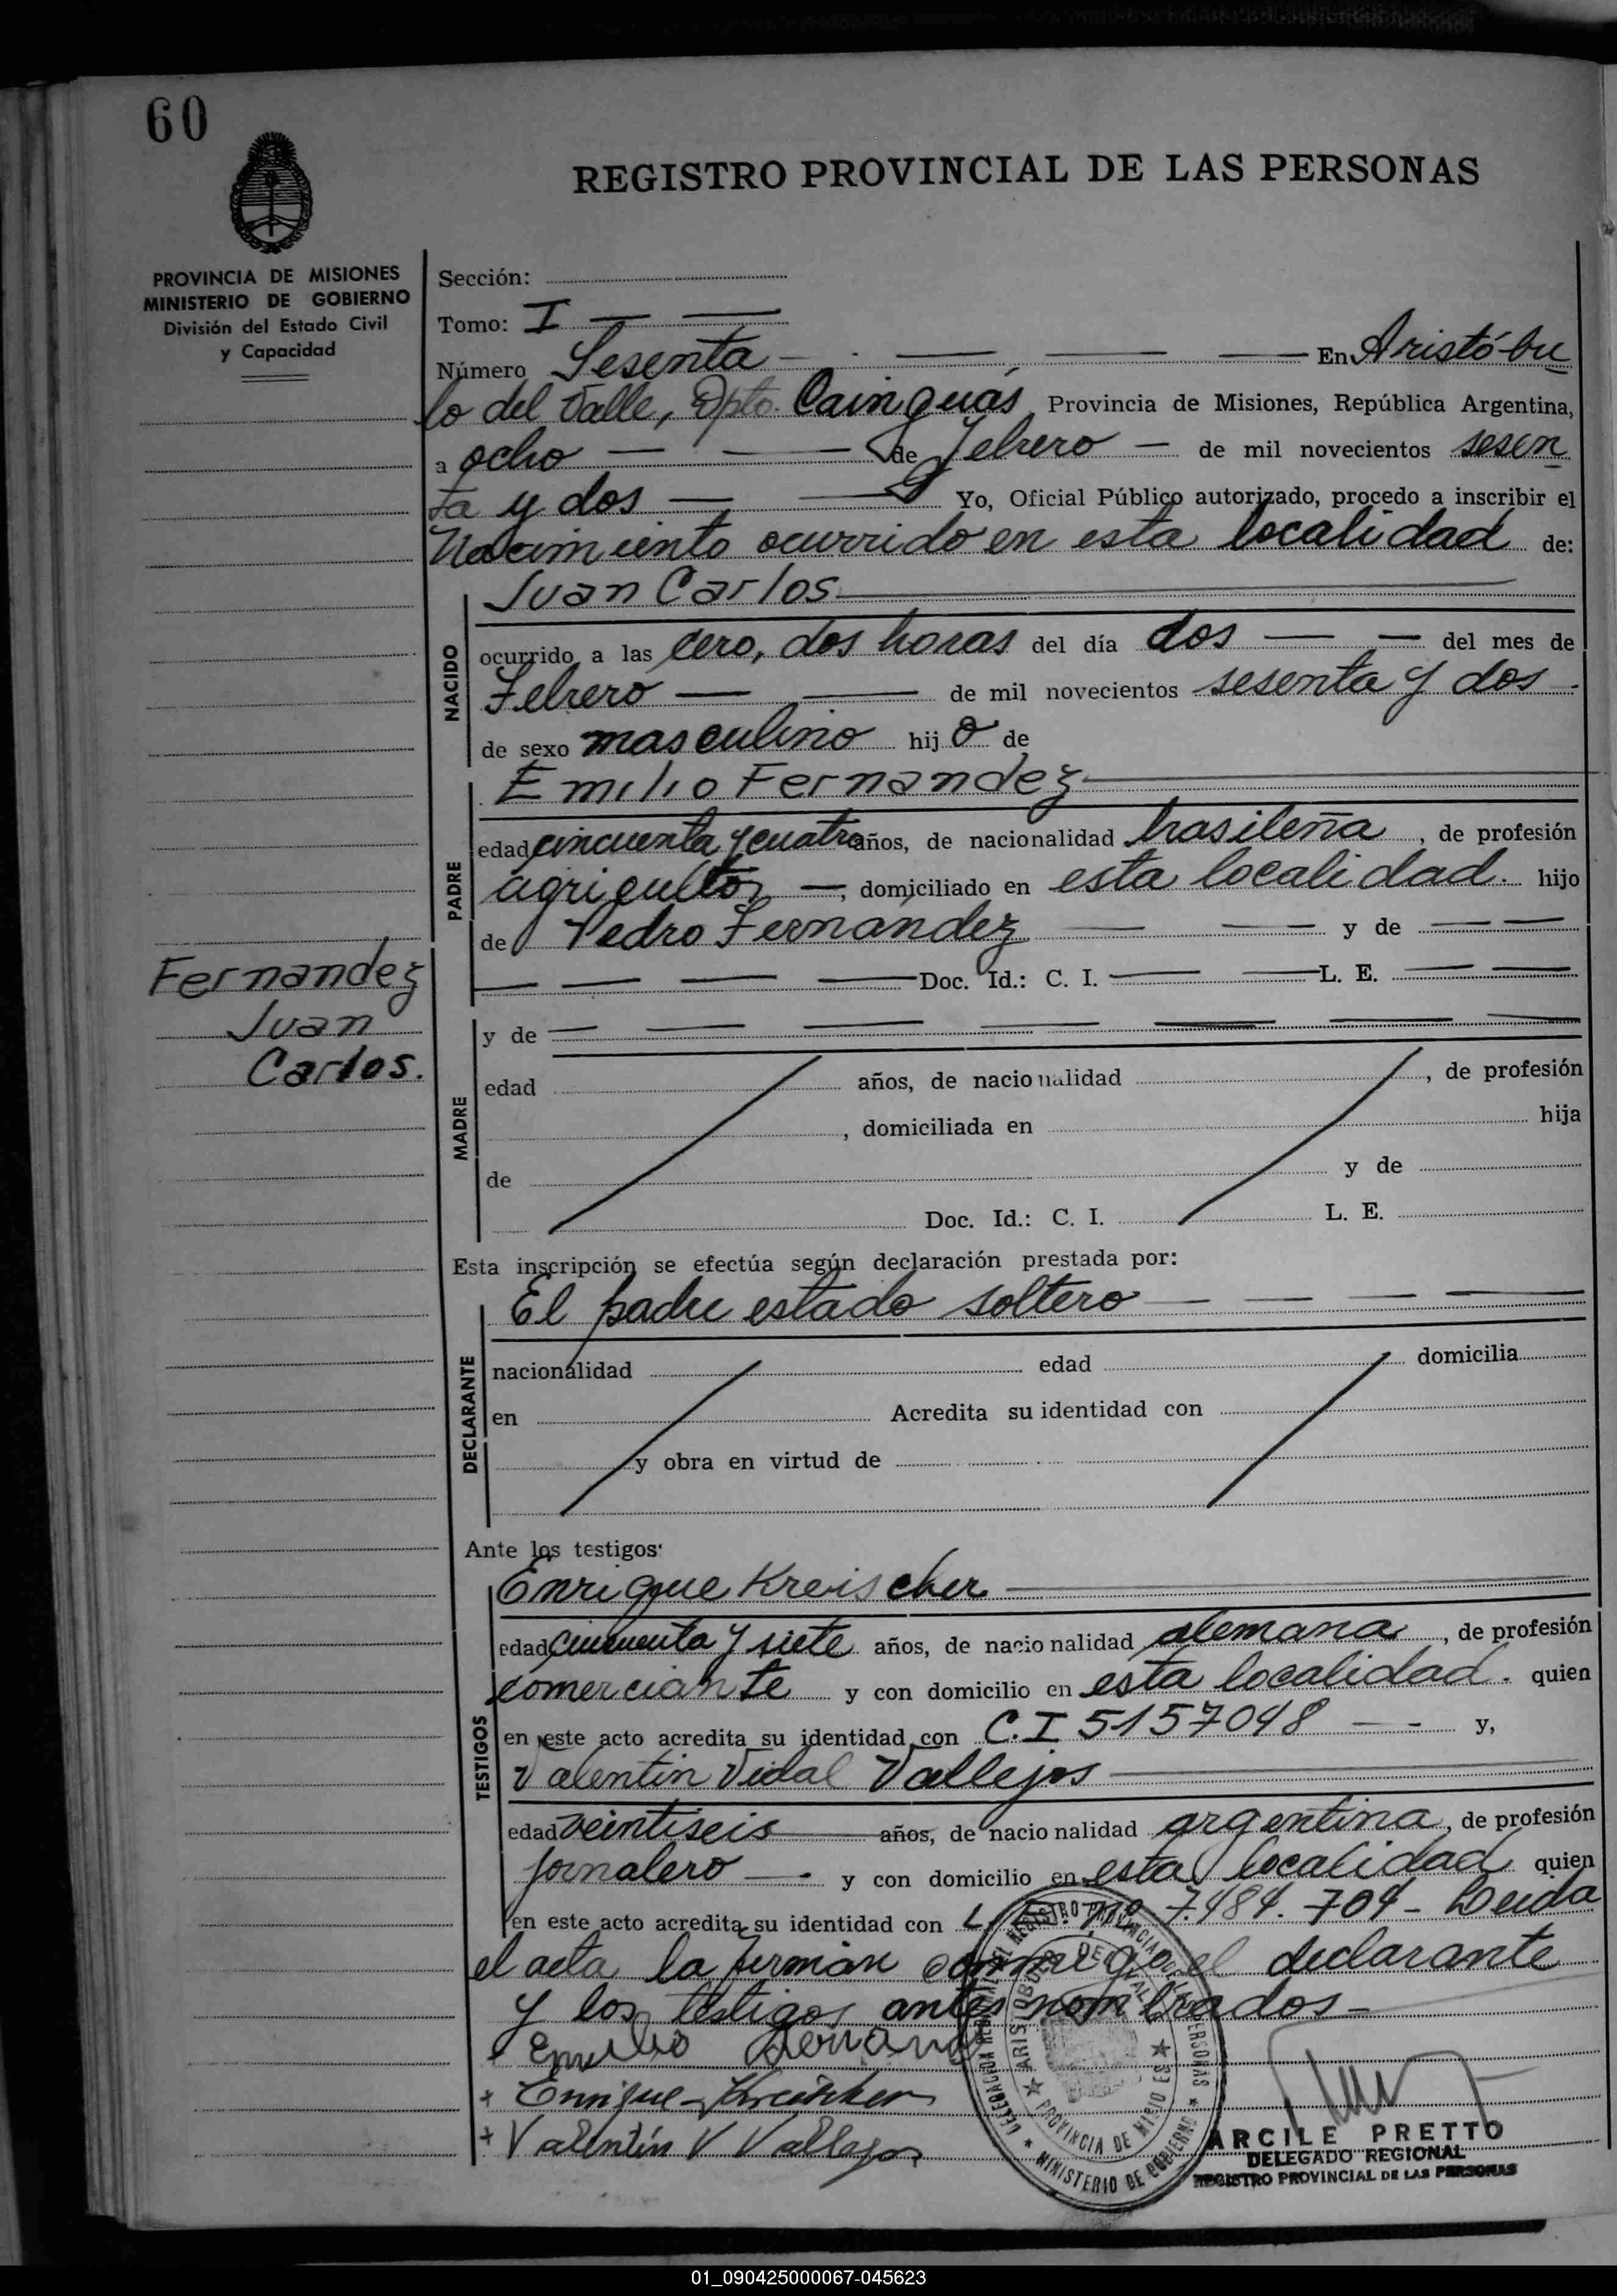 60
REGISTRO PROVINCIAL DE LAS PERSONAS
PROVINCIA DE MISIONES
MINISTERIO DE GOBIERNO
División del Estado Civil
y Capacidad
Sección:
Tomo: I
Número Sesenta En Aristóbu
lo del Valle, Dpto. Cainguás Provincia de Misiones, República Argentina,
a ocho de Febrero de mil novecientos sesen
ta y dos Yo, Oficial Público autorizado, procedo a inscribir el
Nacimiento ocurrido en esta localidad de:
Juan Carlos
NACIDO
ocurrido a las cero, dos horas del día dos del mes de
Febrero de mil novecientos sesenta y dos
de sexo masculino hijo de
Emilio Fernandez
PADRE
edad cincuenta y cuatro años, de nacionalidad brasileña, de profesión
agricultor, domiciliado en esta localidad. hijo
de Pedro Fernández y de
Doc. Id.: C. I. L. E.
Fernandez
Juan
Carlos.
MADRE
y de
edad años, de nacionalidad , de profesión
, domiciliada en hija
de y de
Doc. Id.: C. I. L. E.
Esta inscripción se efectúa según declaración prestada por:
El padre estado soltero
DECLARANTE
nacionalidad edad domicilia
en Acredita su identidad con
y obra en virtud de
Ante los testigos:
Enrique Kreischer
TESTIGOS
edad cincuenta y siete años, de nacionalidad alemana, de profesión
comerciante y con domicilio en esta localidad. quien
en este acto acredita su identidad con C.I 5157048 y,
Valentin Vidal Vallejos
edad veintiseis años, de nacionalidad argentina, de profesión
jornalero y con domicilio en esta localidad quien
en este acto acredita su identidad con L.E. nº 7.484.704- Leida
el acta la firman conmigo el declarante
y los testigos antes nombrados-
Emilio
+ Enrique Kreischer
+ Valentín V Vallejos
DELEGACION REGIONAL DEL REGISTRO PROVINCIAL DE LAS PERSONAS
ARISTOBULO DEL VALLE
PROVINCIA DE MISIONES
MINISTERIO DE GOBIERNO
ARCILE PRETTO
DELEGADO REGIONAL
REGISTRO PROVINCIAL DE LAS PERSONAS
01_090425000067-045623